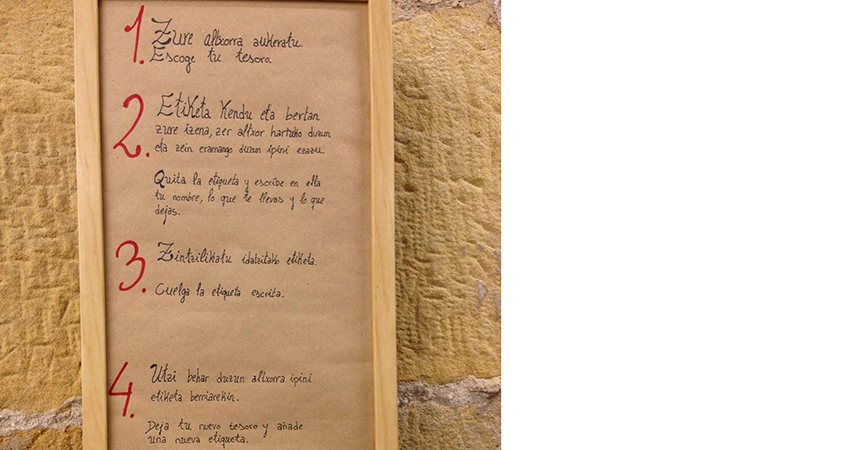 1. Zure altxorra aukeratu.
Escoge tu tesoro.
2. Etiketa Kendu eta bertan
zure izena, zer altxor hartuko duzun
eta zein eramango duzun ipini ezazu.
Quita la etiqueta y escribe en ella
tu nombre, lo que te llevas y lo que
dejas.
3. Zintzilikatu idatzitako etiketa.
Cuelga la etiqueta escrita.
4. Utzi behar duzun altxorra ipini
etiketa berriarekin.
Deja tu nuevo tesoro y añade
una nueva etiqueta.